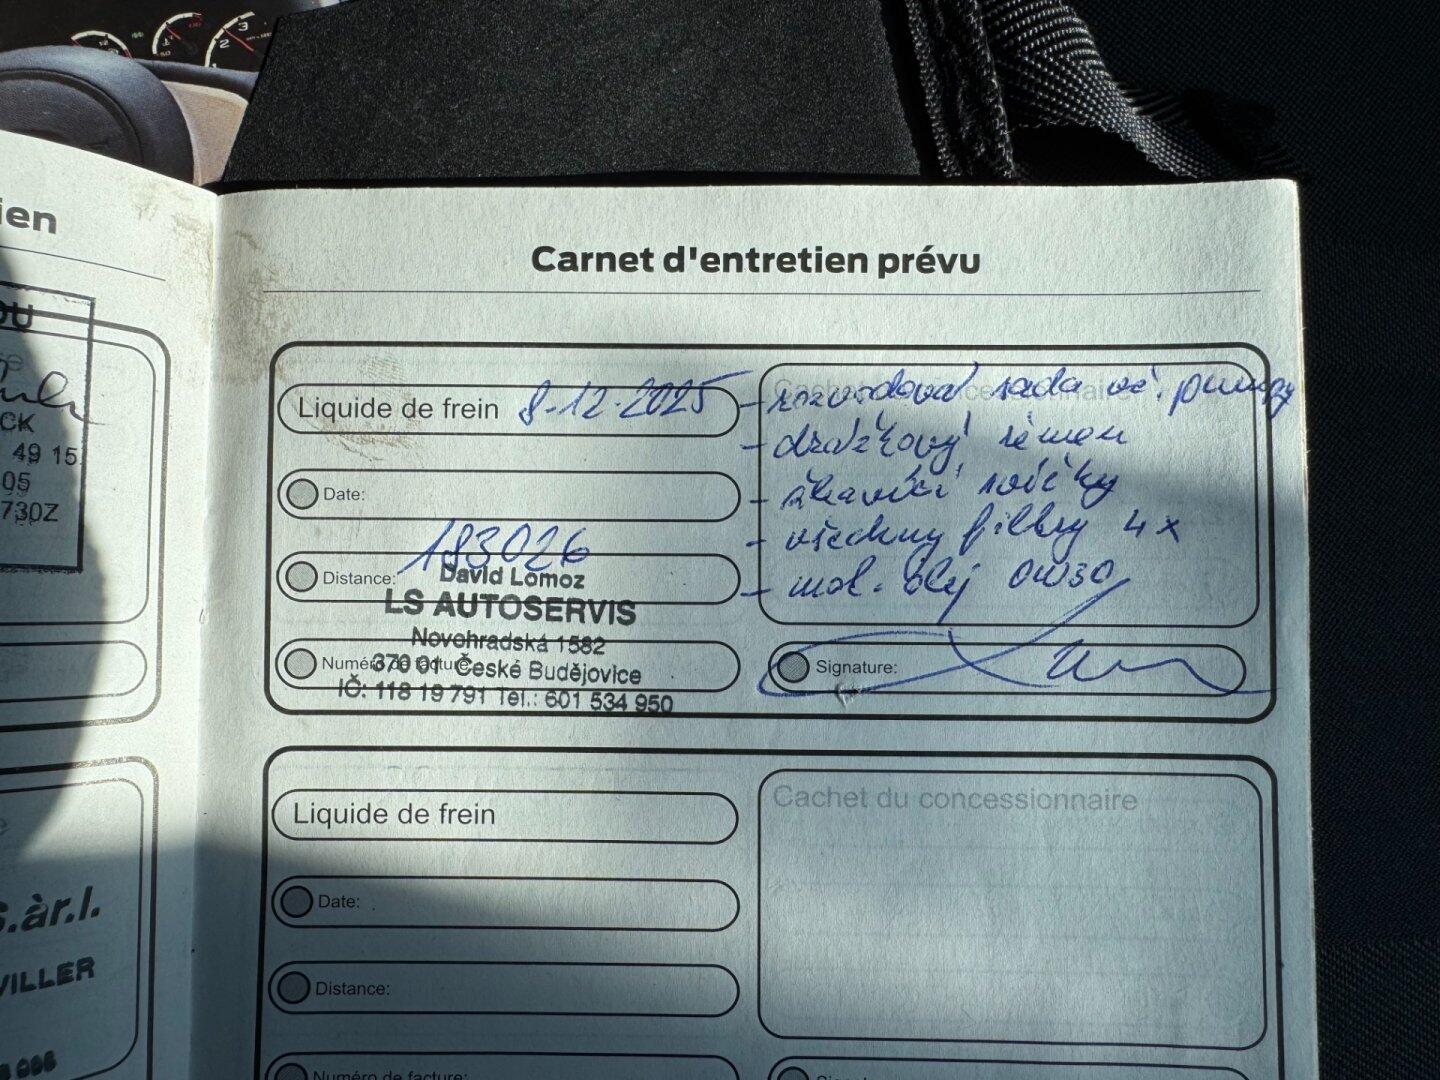 ien
OU
CK
49 15
05
730Z
S.àr.l.
VILLER
Carnet d'entretien prévu
Liquide de frein 8.12.2025
Date:
183026
Distance:
David Lomoz
LS AUTOSERVIS
Novohradská 1582
Numéro de facture:
370 01 České Budějovice
IČ: 118 19 791 Tel.: 601 534 950
- rozvodová sada vč. pumpy
- drážkový řemen
- žhavící svíčky
- všechny filtry 4x
- mot. olej 0W30
Signature:
Liquide de frein
Date:
Distance:
Numéro de facture:
Cachet du concessionnaire